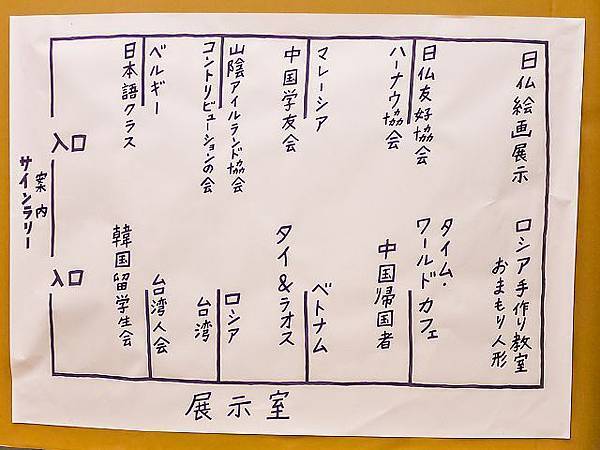 日仏絵画展示
日仏友好協会
ハーナウ協会
マレーシア
中国学友会
山陰アイルランド協会
コントリビューションの会
ベルギー
日本語クラス
ロシア手作り教室
おまもり人形
タイム・
ワールドカフェ
中国帰国者
ベトナム
タイ&ラオス
ロシア
台湾
台湾人会
韓国留学生会
入口
入口
案内
サインラリー
展示室